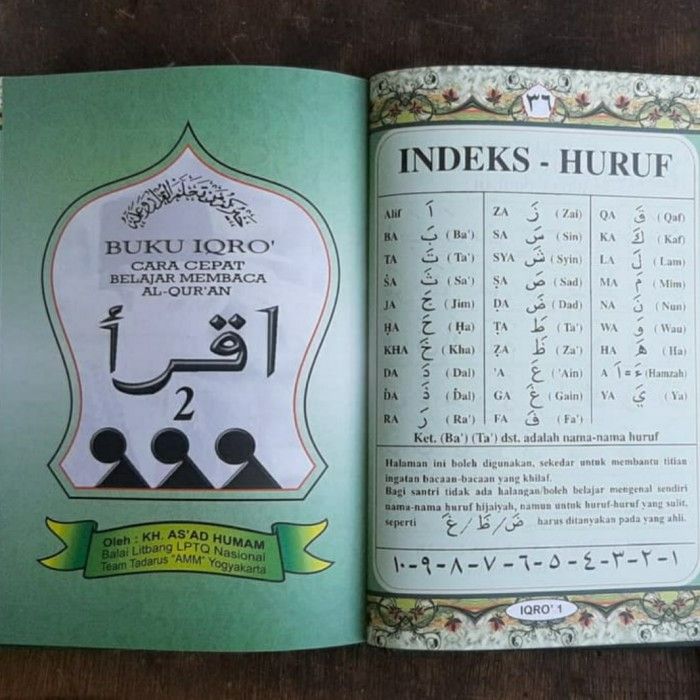 خيركم من تعلم القرآن وعلمه
BUKU IQRO'
CARA CEPAT
BELAJAR MEMBACA
AL-QUR'AN
اقرأ
2
Oleh : KH. AS'AD HUMAM
Balai Litbang LPTQ Nasional
Team Tadarus "AMM" Yogyakarta
٣٦
INDEKS - HURUF
Alif أَ
BA بَ (Ba')
TA تَ (Ta')
ṠA ثَ (Sa')
JA جَ (Jim)
ḤA حَ (Ḥa)
KHA خَ (Kha)
DA دَ (Dal)
ḊA ذَ (Ḋal)
RA رَ (Ra')
ZA زَ (Zai)
SA سَ (Sin)
SYA شَ (Syin)
ṢA صَ (Sad)
ḌA ضَ (Dad)
ṬA طَ (Ta')
ẒA ظَ (Za')
'A عَ ('Ain)
GA غَ (Gain)
FA فَ (Fa')
QA قَ (Qaf)
KA كَ (Kaf)
LA لَ (Lam)
MA مَ (Mim)
NA نَ (Nun)
WA وَ (Wau)
HA هَ (Ha)
A ءَ = أَ (Hamzah)
YA يَ (Ya)
Ket. (Ba') (Ta') dst. adalah nama-nama huruf
Halaman ini boleh digunakan, sekedar untuk membantu titian
ingatan bacaan-bacaan yang khilaf.
Bagi santri tidak ada halangan/boleh belajar mengenal sendiri
nama-nama huruf hijaiyah, namun untuk huruf-huruf yang sulit,
seperti ضَ/ظَ/غَ harus ditanyakan pada yang ahli.
١-٢-٣-٤-٥-٦-٧-٨-٩-١٠
IQRO' 1